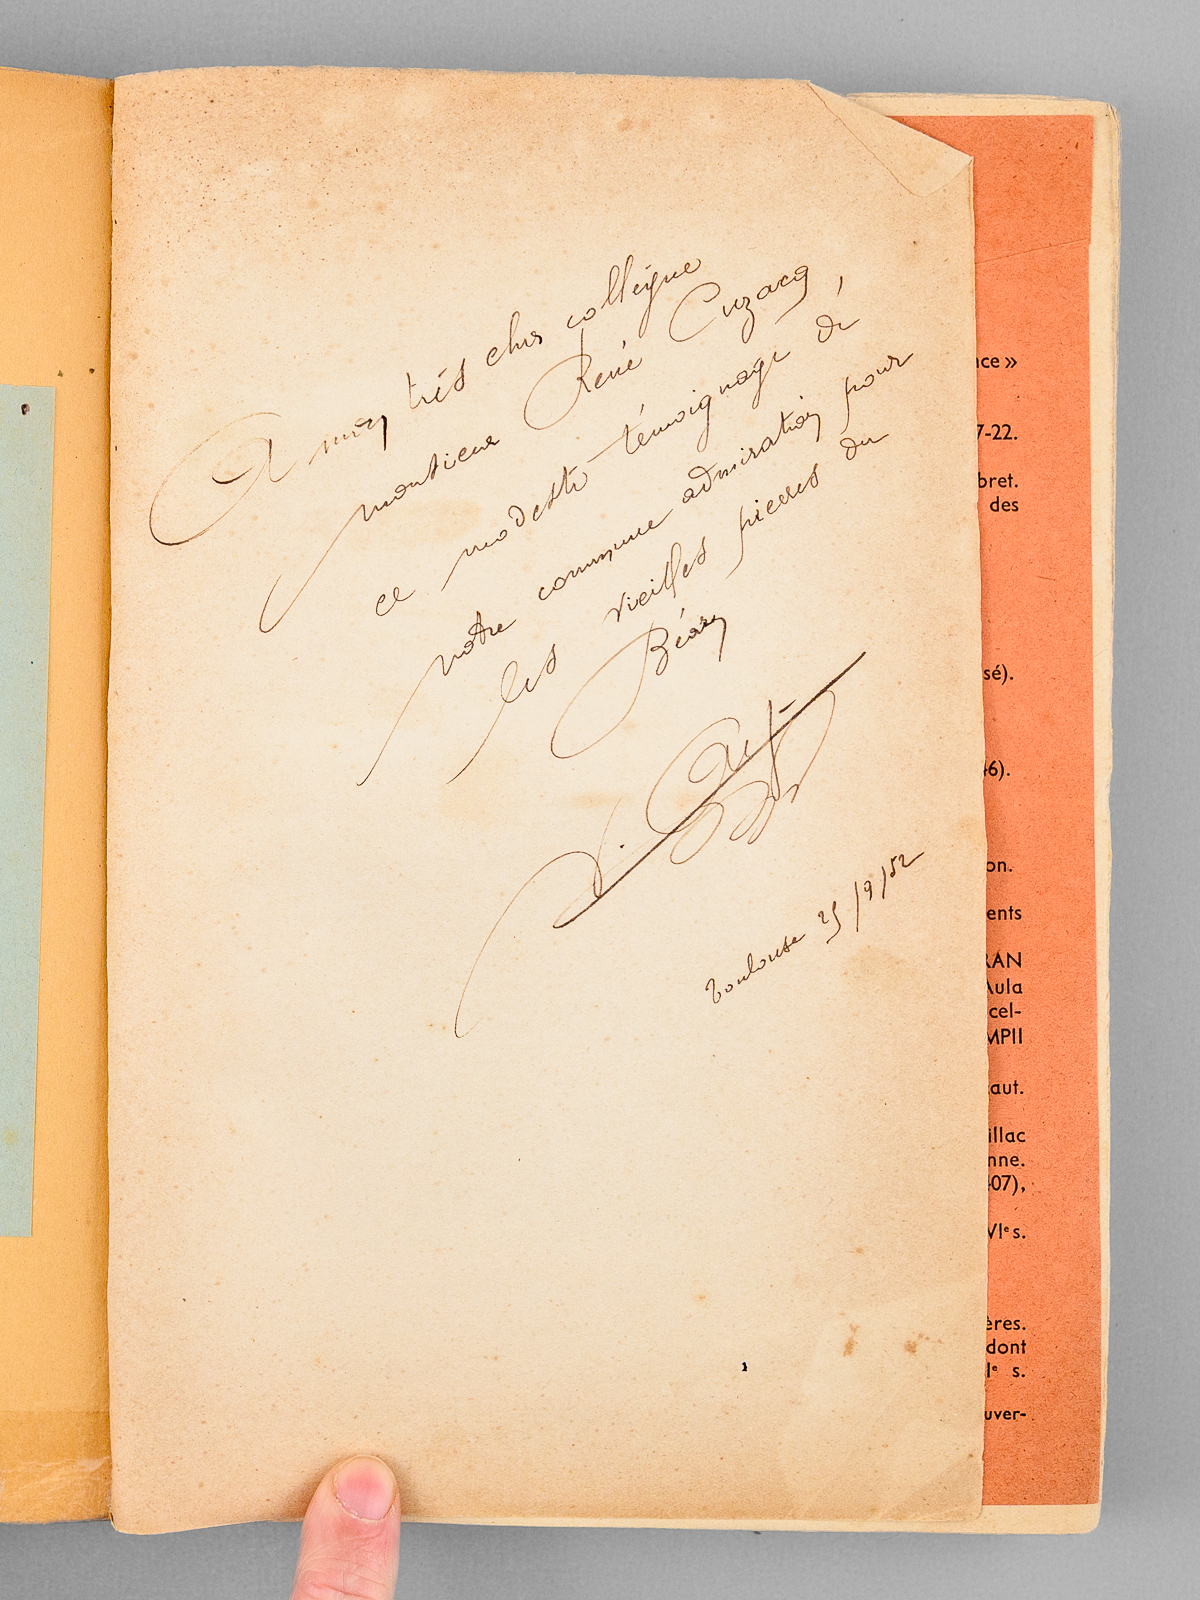 A mon très cher collègue
monsieur René Cuzacq,
ce modeste témoignage de
notre commune admiration pour
les vieilles pierres du
Béarn
Toulouse 25/9/52
nce »
7-22.
bret.
des
sé).
46).
on.
ents
RAN
Aula
cel-
MPII
aut.
illac
nne.
407),
VIe s.
ères.
dont
Ie s.
uver-